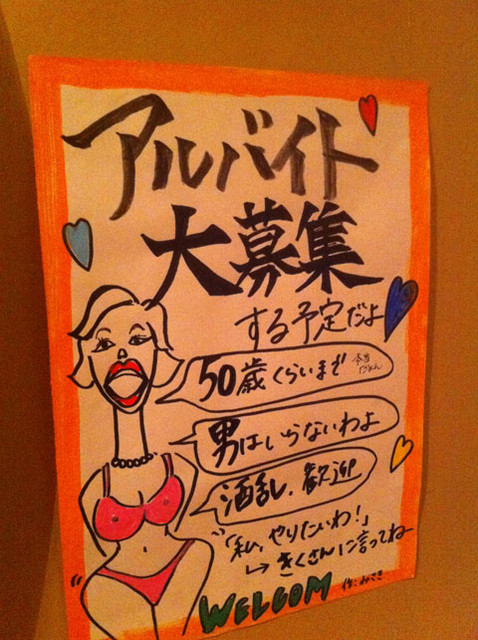 アルバイト
大募集
する予定だよ
50歳くらいまで
男はいらないわよ
酒乱、歓迎
「私、やりたいわ!」
↳ きくさんに言ってねー
WELCOM
作:みさき